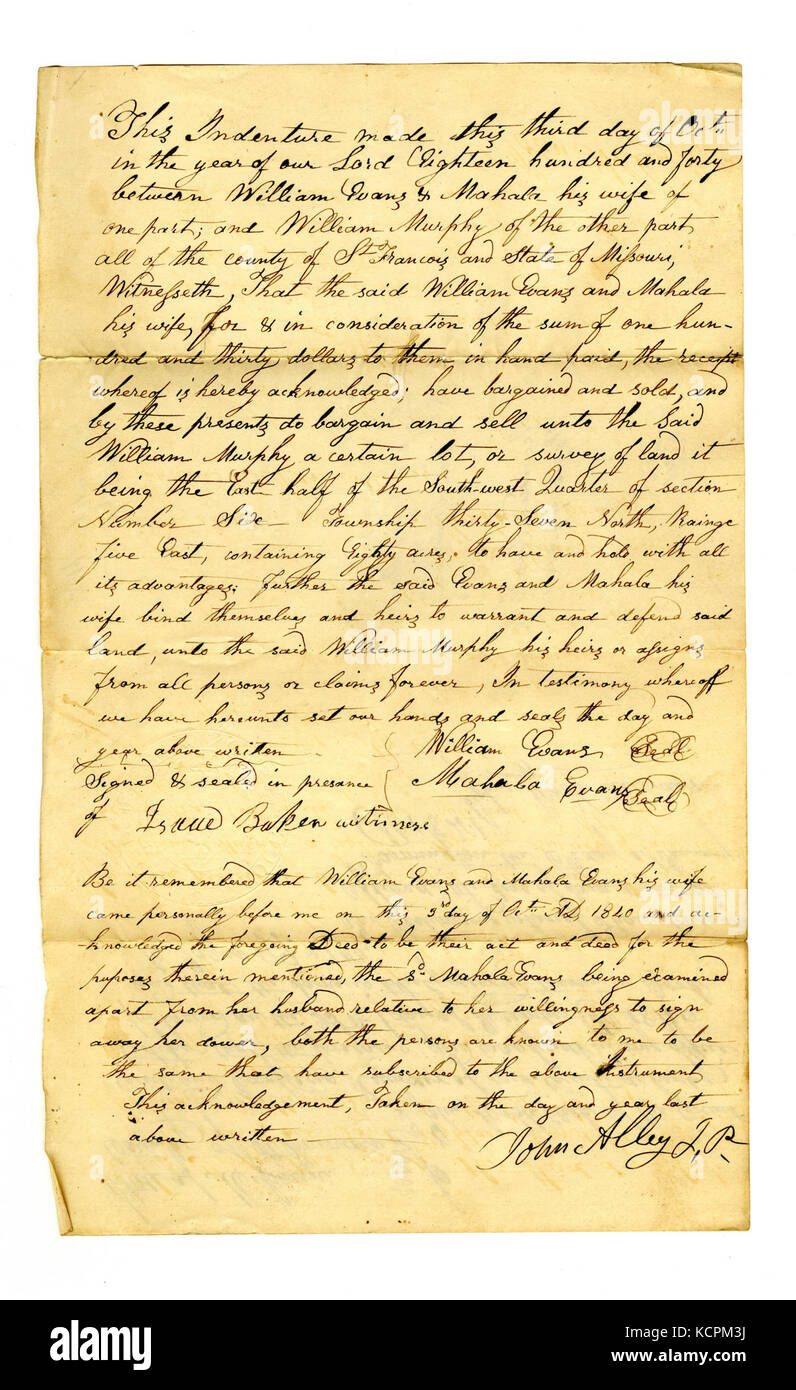 This Indenture made this third day of Octr
in the year of our Lord Eighteen hundred and forty
between William Evans & Mahala his wife of
one part; and William Murphy of the other part
all of the county of St Francois and State of Missouri,
Witnesseth, That the said William Evans and Mahala
his wife, for & in consideration of the sum of one hun-
dred and thirty dollars to them in hand paid, the receipt
whereof is hereby acknowledged; have bargained and sold, and
by these presents do bargain and sell unto the said
William Murphy a certain lot, or survey of land it
being the East half of the South-west Quarter of section
Number Six — Township thirty-Seven North, Rainge
five East, containing Eighty acres. to have and hold with all
its advantages. further the said Evans and Mahala his
wife bind themselves and heirs to warrant and defend said
land, unto the said William Murphy his heirs or assigns
from all persons or claims forever, In testimony whereoff
we have hereunto set our hands and seals the day and
year above written William Evans Seal
Signed & sealed in presance Mahala Evans Seal
of Baker witness
Be it remembered that William Evans and Mahala Evans his wife
came personally before me on this 3rd day of Octr AD, 1840 and ac-
knowledged the foregoing Deed to be their act and deed for the
puposes therein mentioned, the sd. Mahala Evans being examined
apart from her husband relative to her willingness to sign
away her dower, both the persons are known to me to be
the same that have subscribed to the above instrument
This acknowledgement, Taken on the day and year last
above written
John Alley J,P.
alamy
Image ID: KCPM3J
www.alamy.com